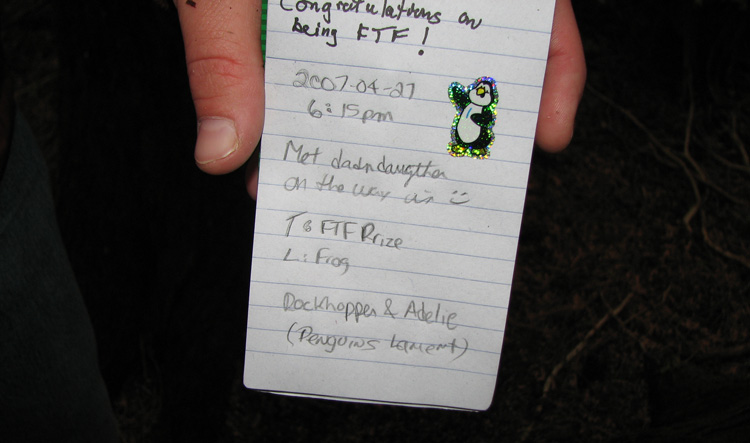 Congratulations on
being FTF!
2007-04-27
6:15pm
Met dadndaugther
on the way in :)
T: FTF Prize
L: Frog
Rockhopper & Adelie
(Penguins Lament)